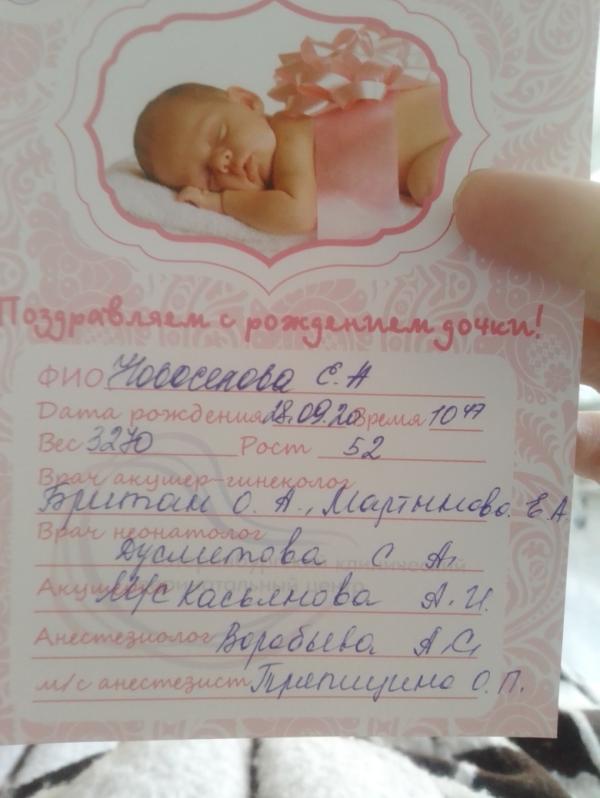 Поздравляем с рождением дочки!
ФИО Новоселова Е. А
Дата рождения 28.09.20 Время 10 47
Вес 3270 Рост 52
Врач акушер-гинеколог
Бритам О. А., Мартынова. Е.А
Врач неонатолог
Дусметова С А.
клинический
Акушерка М/С Касьянова А. И.
перинатальный центр
Анестезиолог Воробьева А.С.
м/с анестезист Тряпицина О. П.